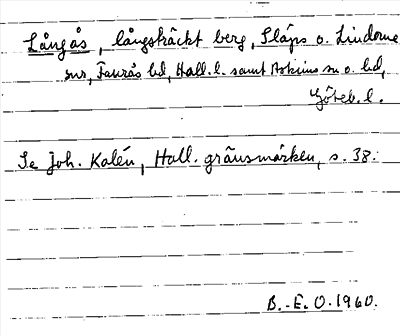 Långås, långsträckt berg, Släps o. Lindome
snr, Fjärås hd, Hall. l. samt Askims sn o. hd,
Göteb. l.
Se Joh. Kalén, Hall. gränsmärken, s. 38.
B.-E. O. 1960.